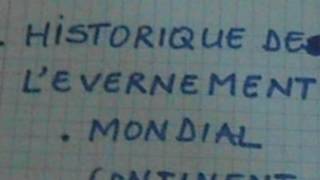 . HISTORIQUE DE
L'EVERNEMENT
. MONDIAL
CONTINENT